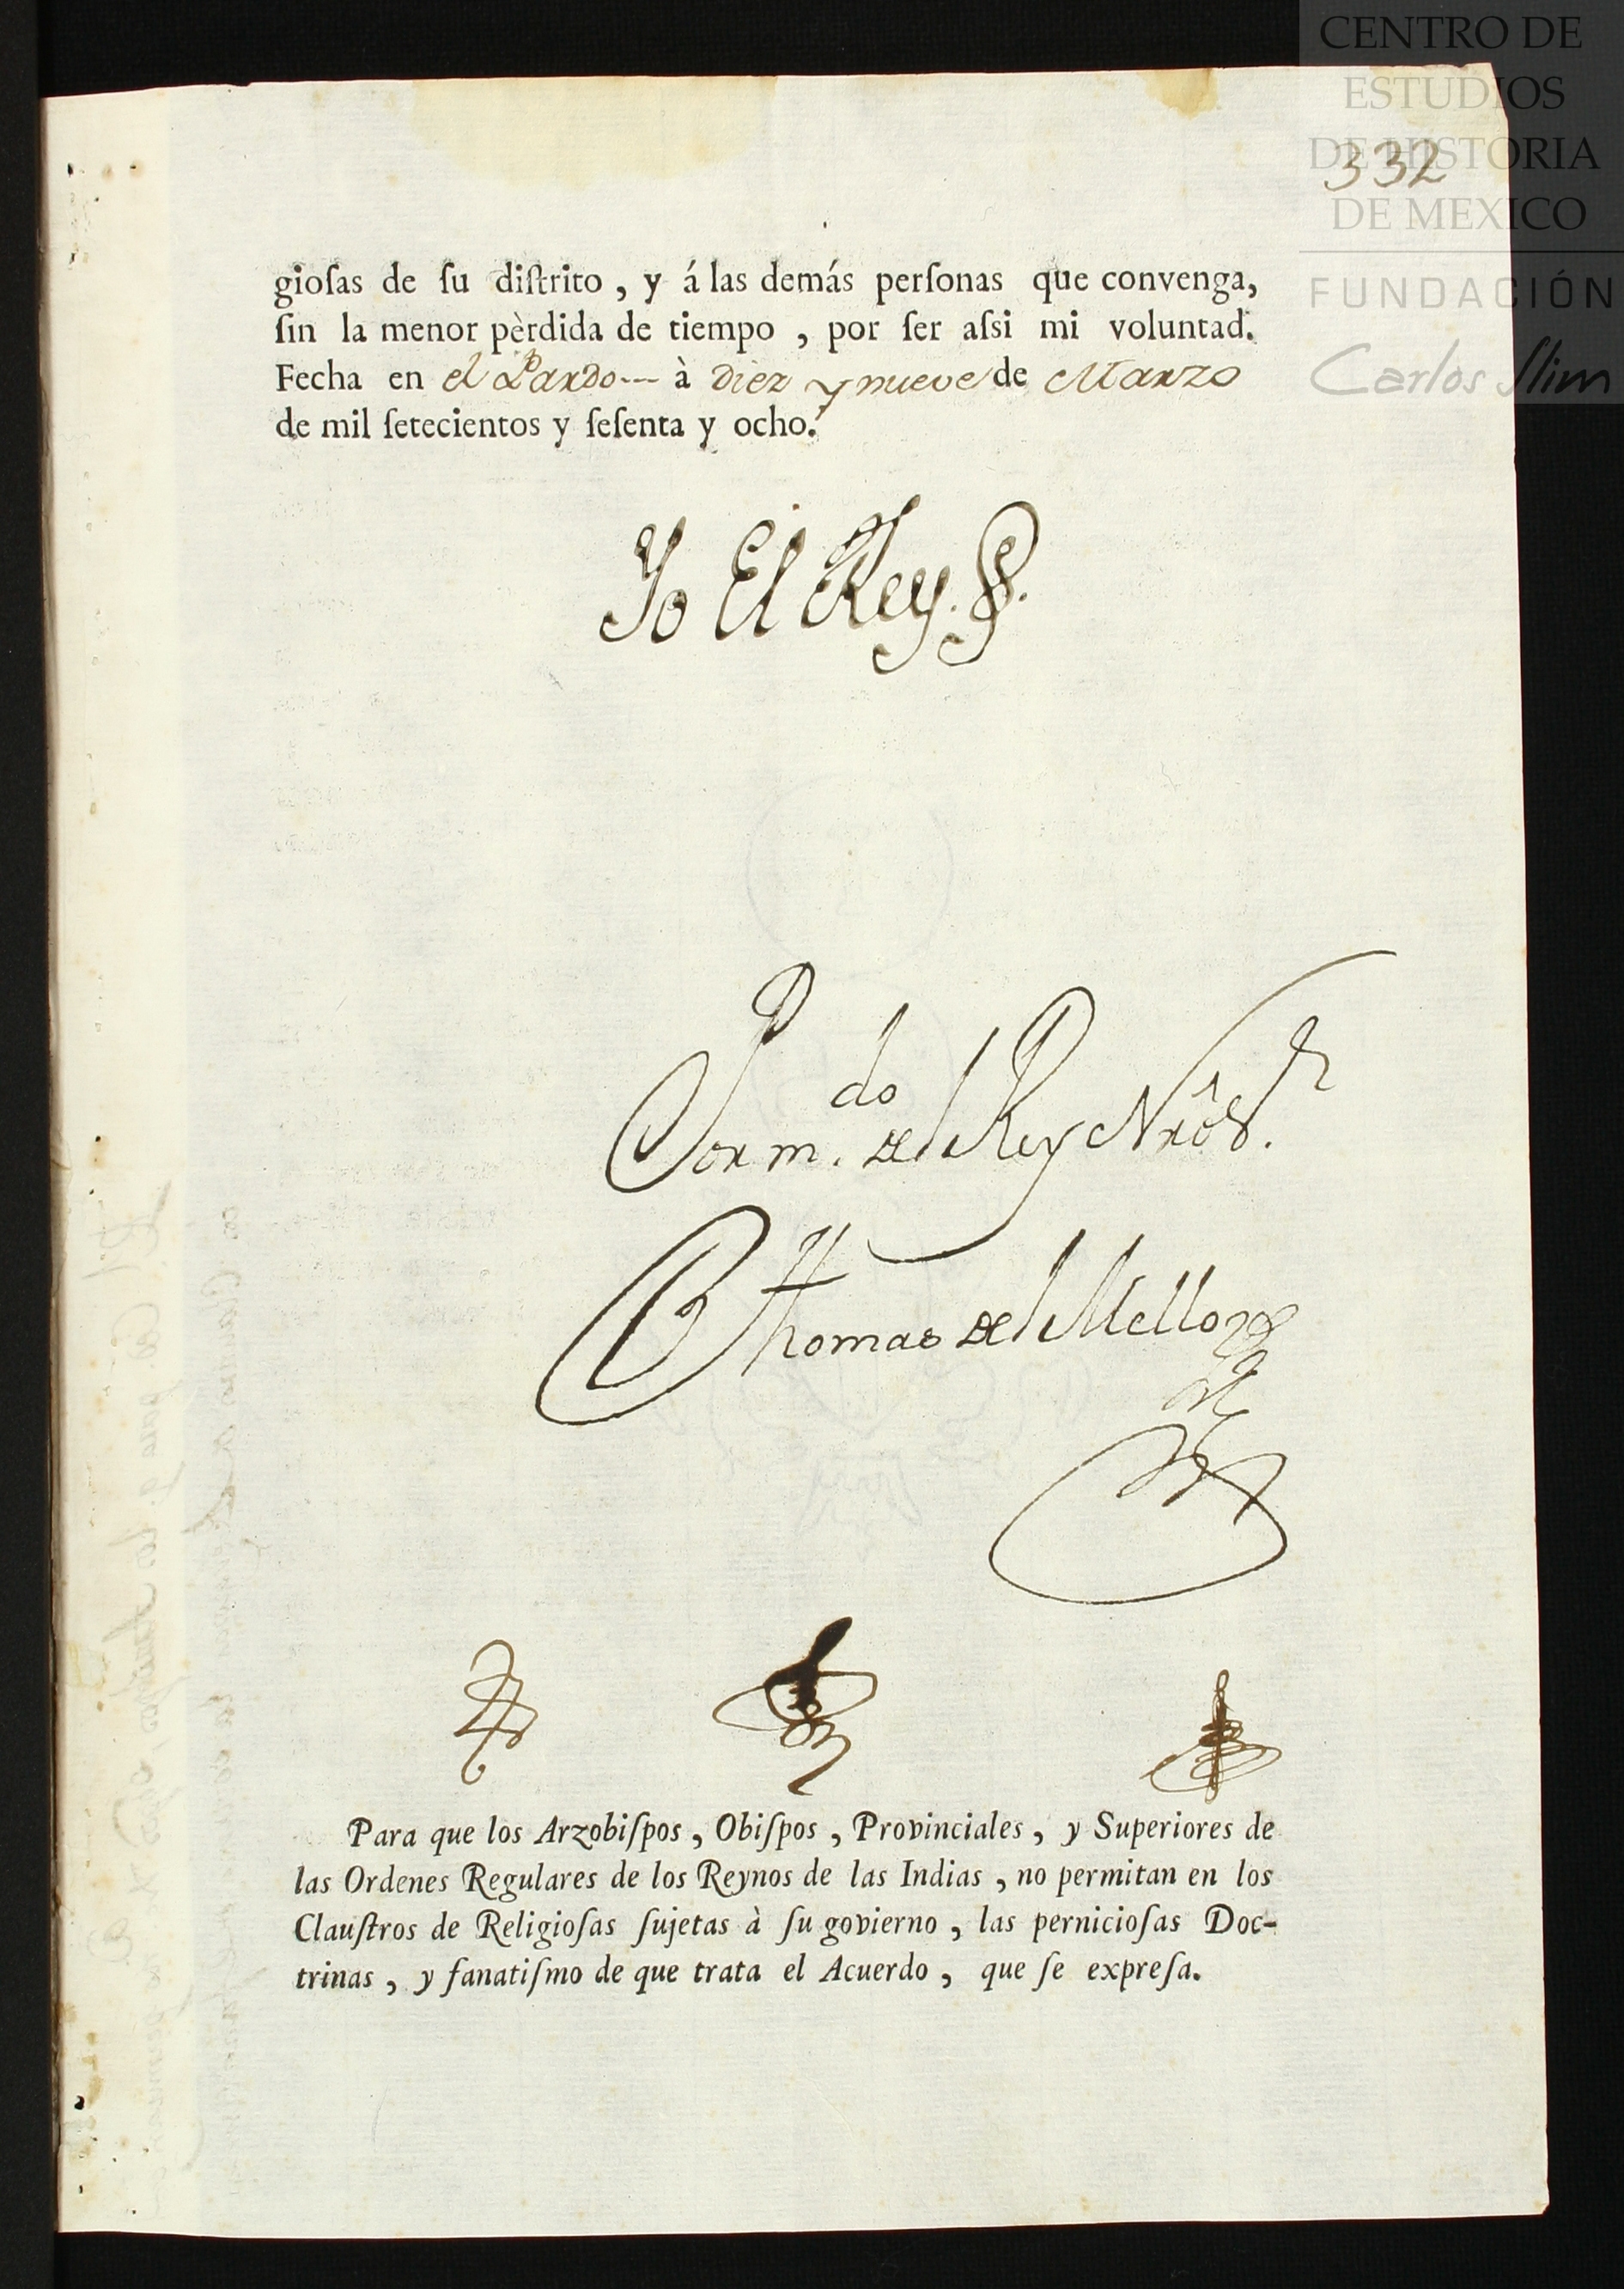 CENTRO DE
ESTUDIOS
DE HISTORIA
DE MEXICO
FUNDACIÓN
Carlos Slim
332
gioſas de ſu diſtrito , y á las demás perſonas que convenga,
ſin la menor pèrdida de tiempo , por ſer aſsi mi voluntad.
Fecha en el Pardo--- à diez y nueve de Marzo
de mil ſetecientos y ſeſenta y ocho.
Yo El Rey.
Por m.do del Rey Nrô Sr.
Thomas del Mello
Para que los Arzobiſpos , Obiſpos , Provinciales , y Superiores de
las Ordenes Regulares de los Reynos de las Indias , no permitan en los
Clauſtros de Religioſas ſujetas à ſu govierno , las pernicioſas Doc-
trinas , y fanatiſmo de que trata el Acuerdo , que ſe expreſa.